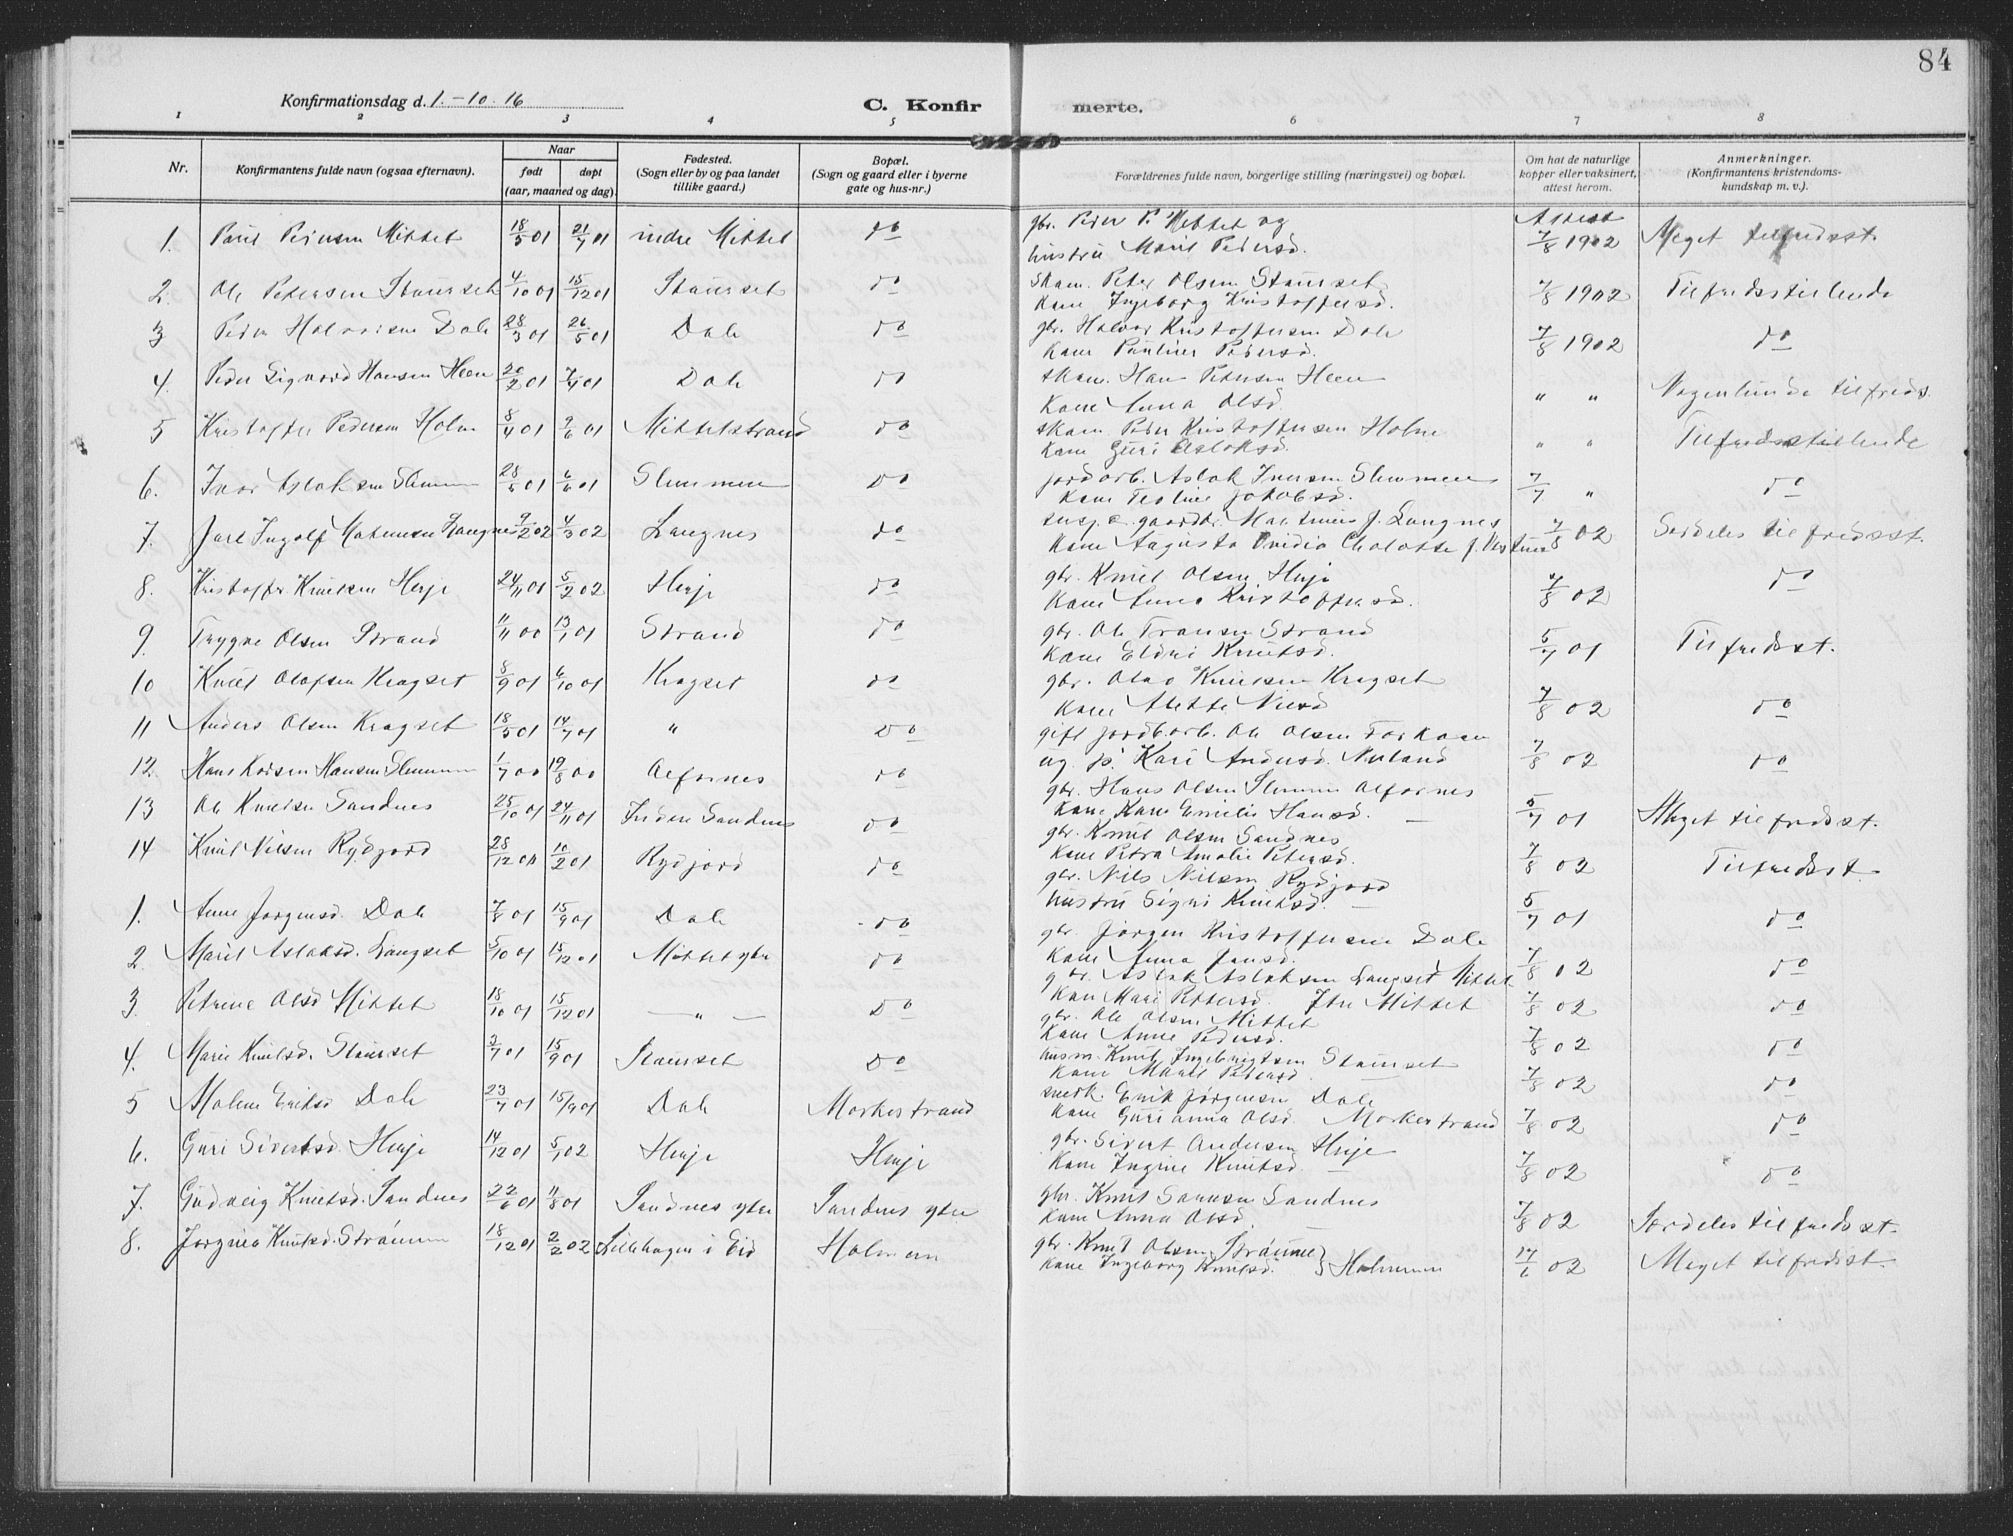 84
Konfirmationsdag d. 1.-10.16
C. Konfir merte.
1 2 3 4 5 6 7 8
Nr.
Konfirmantens fulde navn (ogsaa efternavn).
Naar
født døpt
(aar, maaned og dag).
Fødested.
(Sogn eller by og paa landet
tillike gaard.)
Bopæl.
(Sogn og gaard eller i byerne
gate og hus-nr.)
Forældrenes fulde navn, borgerlige stilling (næringsvei) og bopæl.
Om hat de naturlige
kopper eller vaksinert,
attest herom.
Anmerkninger.
(Konfirmantens kristendoms-
kundskap m. v.).
1. Paul Pedersen Mittet 18/5 01 21/7 01 indre Mittet do gbr. Peder P. Mittet og Attest
hustru Marit Pedersd. 7/8 1902 Meget tilfredsst.
2. Ole Petersen Staurset 4/10 01 15/12 01 Staurset do Skom. Peter Olsen Staurset 7/8 1902 Tilfredsstillende
Kone Ingeborg Kristoffersd.
3 Peder Halvorsen Dale 28/3 01 26/5 01 Dale do gbr. Halvor Kristoffersen Dale 7/8 1902 do
Kone Pauline Pedersd.
4. Peder Sigvard Hansen Heen 20/2 01 7/4 01 Dale do skom. Hans Petersen Heen " " Nogenlunde tilfreds.
Kone Anna Olsd.
5 Kristoffer Pedersen Holm 8/4 01 9/6 01 Mittetstrand do skom. Peder Kristoffersen Holm " " Tilfredsstillende
Kone Guri Aslaksd.
6. Ivar Aslaksen Slemmen 28/5 01 6/6 01 Slemmen do jordarb. Aslak Iversen Slemmen 7/7 " do
Kone Jakobsd.
7. Jarl Ingolf Langnes 9/2 02 4/3 02 Langnes do J. Langnes 7/8 02 Særdeles tilfredsst.
Kone Augusta Ovidia
8. Kristoffer Knutsen Herje 24/11 01 5/2 02 Herje do gbr. Knut Olsen Herje 7/8 02 do
Kone Anna Kristoffersd.
9. Trygve Olsen Strand 11/11 00 13/1 01 Strand do gbr. Ole Strand 5/7 01 Tilfredsst.
Kone Eldri Knutsd.
10 Knut Olafsen Kragset 8/9 01 6/10 01 Kragset do gbr. Olav Knutsen Kragset 7/8 02 do
Kone Nilsd
11 Anders Olsen Kragset 18/5 01 14/7 01 " do gift jordb.arb. Ole Olsen
ug. p. Kari Andersd. Nyland 7/8 02 do
12. Hans Hansen Slemmen 1/7 00 19/8 00 Alfarnes do gbr. Hans Olsen Slemmen Alfarnes 5/7 01 Meget tilfredsst.
Kone Emilie Hansd.
13 Ole Knutsen Sandnes 25/10 01 24/11 01 Indre Sandnes do gbr. Knut Olsen Sandnes 7/8 02 Tilfredsst.
Kone Petra Amalie Petersd.
14 Knut Nilsen Rydjord 28/12 00 10/2 01 Rydjord do gbr. Nils Nilsen Rydjord 5/7 01 do
hustru Signi Knutsd.
1. Anne Jørgensd. Dale 7/8 01 15/9 01 Dale do gbr. Jørgen Kristoffersen Dale 7/8 02 do
Kone Anna Jensd.
2 Marit Aslaksd. Langset 5/10 01 15/12 01 Mittet ytre do gbr. Aslak Aslaksen Langset Mittet 7/8 02 do
Kone Mari Pettersd. Ytre Mittet
3. Petrine Olsd Mittet 18/10 01 15/12 01 — " — do gbr. Ole Olsen Mittet 7/8 02 do
Kone Anne Pedersd.
4. Marie Knutsd. Staurset 2/7 01 15/9 01 Staurset do husm. Knut Ingebrigtsen Staurset 7/8 02 do
Kone Marit Pedersd
5 Malene Eriksd Dale 23/7 01 15/9 01 Dale Morkestrand snek. Erik Jørgensen Dale 7/8 02 do
Kone Gurianna Olsd. Morkestrand
6. Guri Sivertsd. Herje 14/12 01 5/1 02 Herje Herje gbr. Sivert Andersen Herje 7/8 02 do
Kone Ingrine Knutsd.
7. Gudveig Knutsd. Sandnes 22/6 01 11/8 01 Sandnes ytre Sandnes ytre gbr. Knut Sandnes 7/8 02 Særdeles tilfredsst.
Kone Anna Olsd.
8. Jørgine Knutsd. Strømme 18/12 01 2/2 02 Lillehagen i Eid Holmem gbr. Knut Olsen Strømme 17/6 02 Meget tilfredsst.
Kone Ingeborg Knutsd. } Holmem